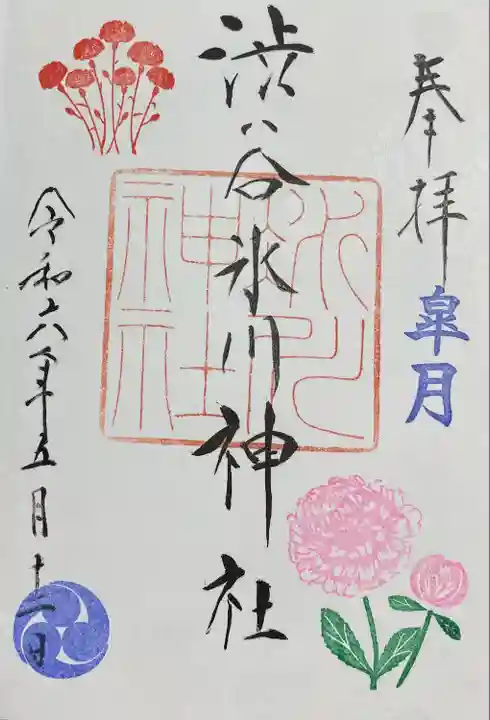 奉拝
皐月
渋谷氷川神社
氷川神社
令和六年五月十一日